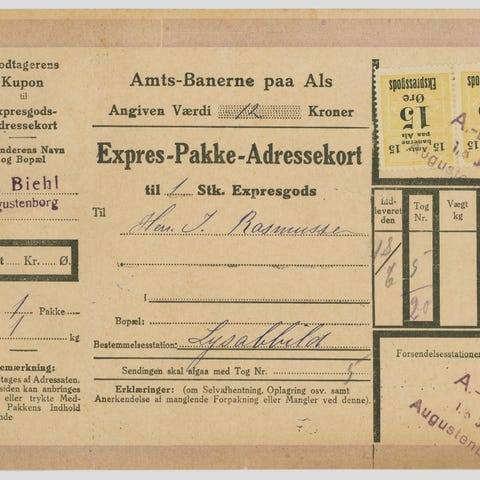 odtagerens
Kupon
til
xpresgods-
dressekort
nderens Navn
og Bopæl
Biehl
gustenborg
Kr. Ø.
1 Pakke
1 kg
emærkning:
tages af Adressaten.
siden kan anbringes
eller trykte Med-
Pakkens Indhold
nde
Amts-Banerne paa Als
Angiven Værdi 12 Kroner
Expres-Pakke-Adressekort
til 1 Stk. Expresgods
Til
Herr J. Rasmusse
i
Bopæl:
Bestemmelsesstation: Lysabbild
Sendingen skal afgaa med Tog Nr. 5
Erklæringer: (om Selvafhentning, Oplagring osv. samt
Anerkendelse af manglende Forpakning eller Mangler ved denne).
Expresgods
Øre
15
15 Amts- 15
banerne
paa Als
A.-
Augusten
Ind-
leveret
den
Tog
Nr.
Vægt
kg
18/6
5
20
Forsendelsesstationen
A.-
Augustenb